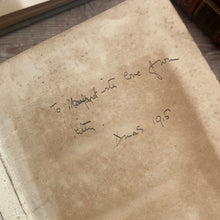 To Margaret with love from
Xmas 195